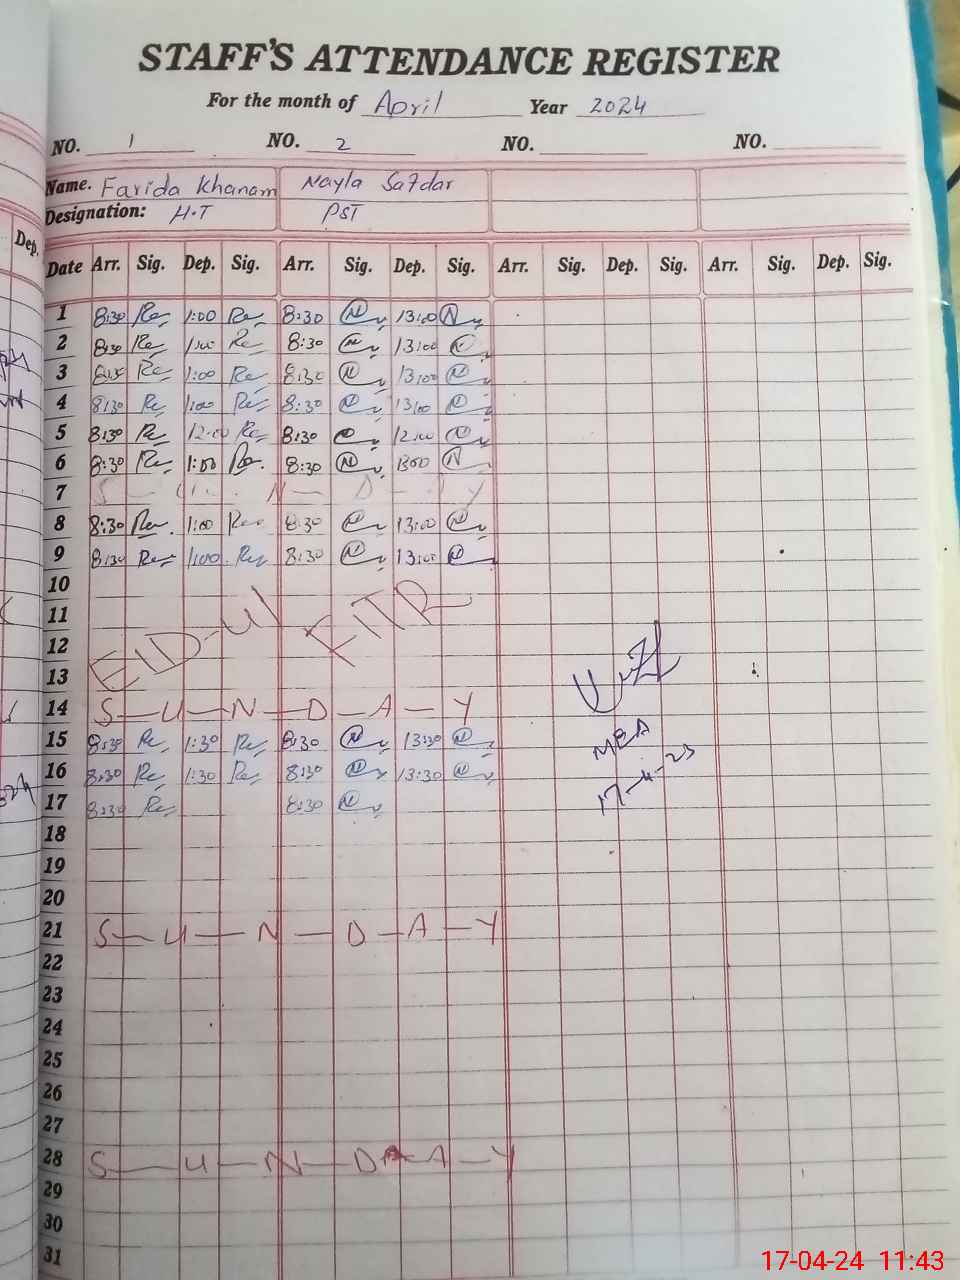 STAFF'S ATTENDANCE REGISTER
For the month of April Year 2024
NO. 1 NO. 2 NO. NO.
Name. Farida Khanam Nayla Safdar
Designation: H.T PST
Dep.
Date Arr. Sig. Dep. Sig. Arr. Sig. Dep. Sig. Arr. Sig. Dep. Sig. Arr. Sig. Dep. Sig.
1 8:30 1:00 8:30 13:00
2 8:30 1:00 8:30 13:00
3 8:30 1:00 8:30 13:00
4 8:30 1:00 8:30 13:00
5 8:30 12:00 8:30 12:00
6 8:30 1:00 8:30 1300
7 S - U - N - D - A Y
8 8:30 1:00 8:30 13:00
9 8:30 1:00 8:30 13:00
10
11
12
EID-ul FITR
13
14 S - U - N - D - A - Y
15 8:30 1:30 8:30 13:30
MEA
16 8:30 1:30 8:30 13:30
17 8:30 8:30
17-4-23
18
19
20
21 S - U - N - D - A - Y
22
23
24
25
26
27
28 S - U - N - D - A - Y
29
30
31
17-04-24 11:43